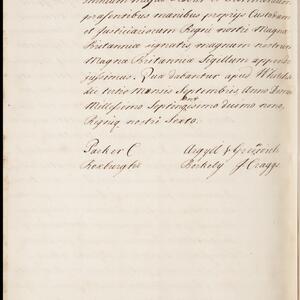 præsentibus manibus proprijs Custodum
et Justiciariorum Regni nostri Magnæ
Britanniæ signatis, magnum nostrum
Magnæ Britanniæ Sigillum appendi
jussimus. Quæ dabantur apud Whitehall
die tertio Mensis Septembris Anno Domini
Millesimo Septingentesimo decimo nono,
Regniq nostri Sexto.
Parker C Argyll & Greenwich
Roxburghe Berkeley J Craggs